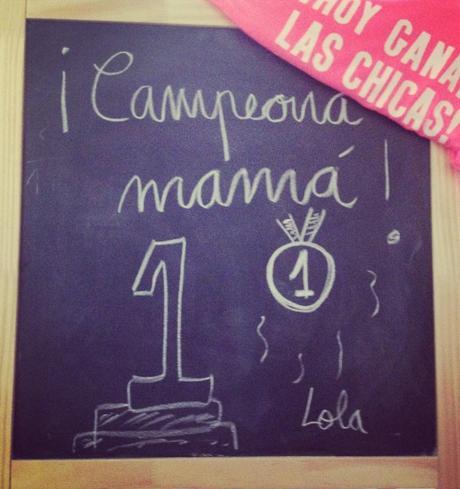 ¡Campeona
mamá!
1
1
Lola
¡HOY GANA
LAS CHICAS!